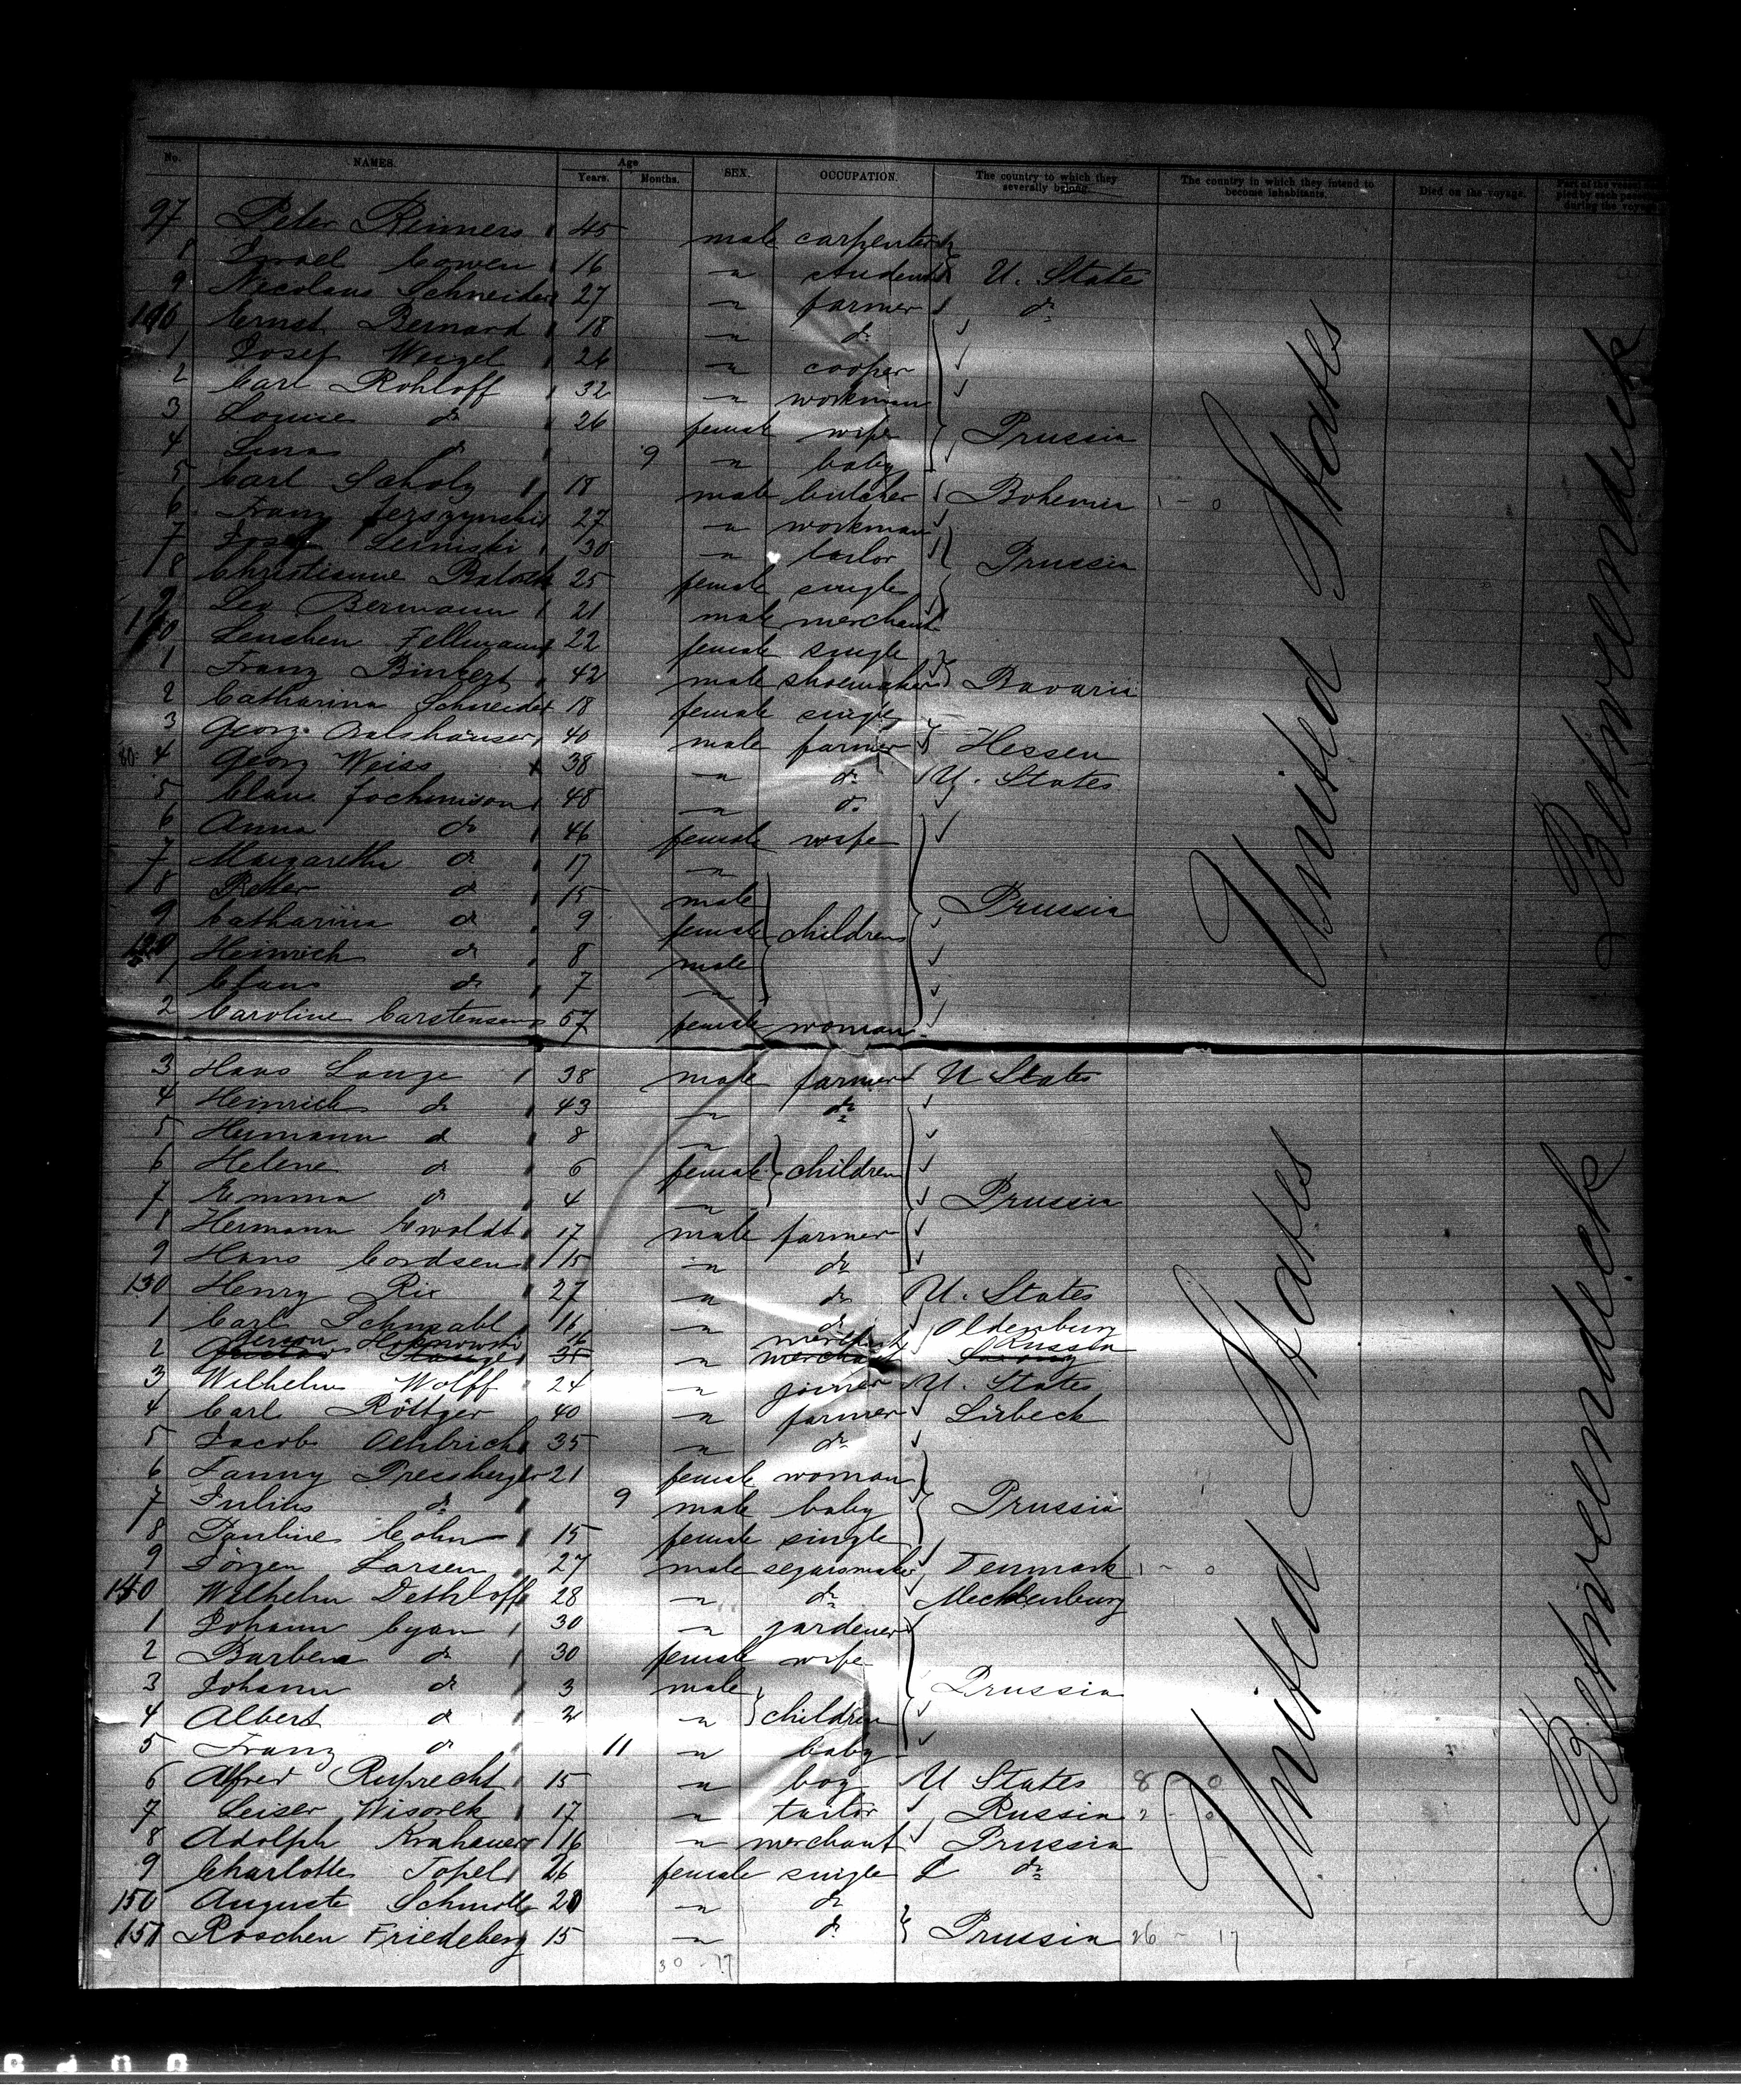 No. NAMES. Age Years. Months. SEX. OCCUPATION. The country to which they severally belong. The country in which they intend to become inhabitants. Died on the voyage. Part of the vessel
97 Peter Reimers 45 male carpenter
8 Israel Cowen 16 " student U. States
9 Nicolaus Schneider 27 " farmer do
100 Ernst Bernard 18 " do
1 Josef Weigel 26 " cooper
2 Carl Rohloff 32 " workman
3 Louise do 26 female wife Prussia
4 Lina do 9 " baby
5 Carl Scholz 18 male butcher Bohemia
6 Franz Jerszynski 27 " workman
7 Josef Leiniski 30 " tailor Prussia
8 Christianne 25 female single
9 Leo Bermann 21 male merchant
110 Lenchen Fellmann 22 female single
1 Franz Bingert 42 male shoemaker Bavaria
2 Catharina Schneider 18 female single
3 Georg Aalshäuser 40 male farmer Hessen
4 Georg Weiss 38 " do U. States
5 Claus Jochimson 48 " do
6 Anna do 46 female wife
7 Margaretha do 17 "
8 Peter do 15 male Prussia
9 Catharina do 9 female children
120 Heinrich do 8 male
1 Claus do 7 "
2 Caroline Carstensen 57 female woman
3 Hans Lange 38 male farmer U States
4 Heinrich do 43 " do
5 Hermann do 8 "
6 Helene do 6 female children
7 Emma do 4 " Prussia
8 Hermann Ewoldt 17 male farmer
9 Hans Cordsen 15 " do
130 Henry Rix 27 " do U. States
1 Carl Schnabl 16 " do Oldenburg
Gerson 16 merchant Russia
2 35 " merchant
3 Wilhelm Wolff 24 " joiner U. States
4 Carl Röttger 40 " farmer Lübeck
5 Jacob Oehlrich 35 " do
6 Fanny Pressberger 21 female woman
7 Julius do 9 male baby Prussia
8 Pauline Cohn 15 female single
9 Jörgen Larsen 27 male segarsmaker Denmark
140 Wilhelm Dethloff 28 " do Mecklenburg
1 Johann Cyan 30 " gardener
2 Barbera do 30 female wife
3 Johann do 3 male Prussia
4 Albert do 2 " children
5 Franz do 11 " baby
6 Alfred Ruprecht 15 " boy U States 8 - 0
7 Leiser Wisorek 17 " tailor Russia 2 - 0
8 Adolph Krahauer 16 " merchant Prussia
9 Charlotte Topel 26 female single do
150 Auguste Schmoll 20 " do
151 Roschen Friedeberg 15 " do Prussia 26 - 17
30 - 17
United States
United States
Betweendeck
Betweendeck